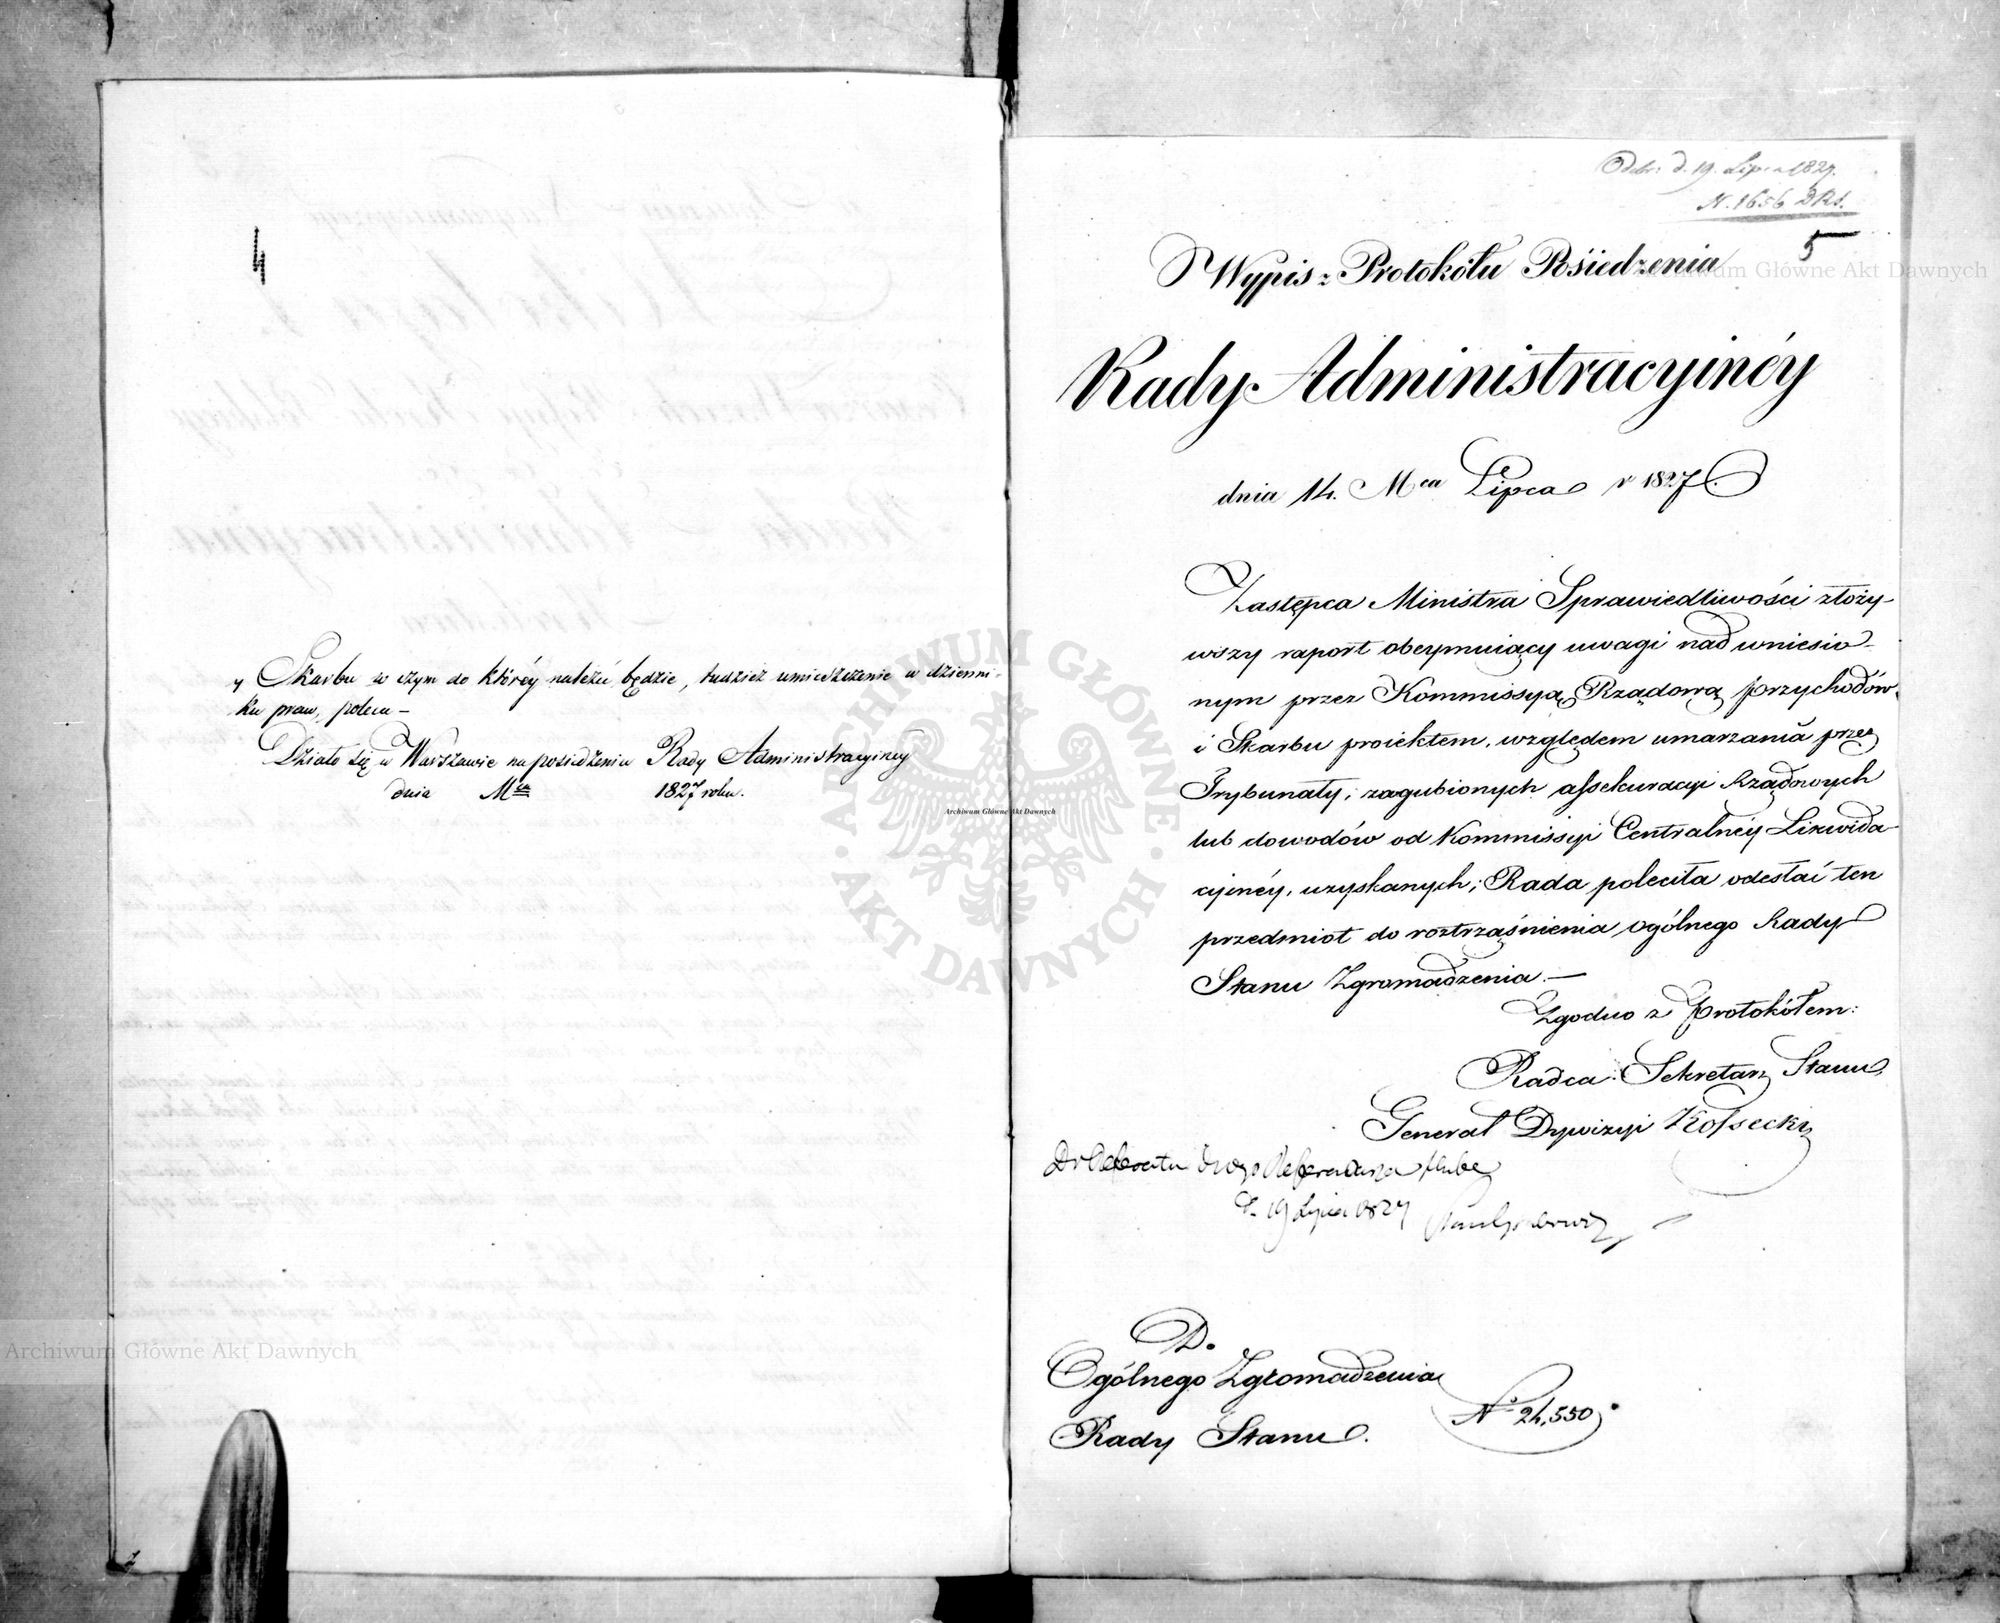 4
y Skarbu w czym do któréy należeć będzie, tudzież umieszczenie w dzienni-
ku praw, poleca —
Działo się w Warszawie na posiedzeniu Rady Administracyiney
dnia Mca 1827 roku.
Odebr: d. 19. Lipca 1827.
N. 1656 DRS.
5
Wypis z Protokółu Posiedzenia
Rady Administracyinéy
dnia 14. Mca Lipca r 1827.
Zastępca Ministra Sprawiedliwości złoży-
wszy raport obeymuiący uwagi nad wniesio-
nym przez Kommissyą Rządową Przychodów
i Skarbu proiektem, względem umarzania przez
Trybunały, zagubionych assekuracyi Rządowych
lub dowodów od Kommissyi Centralnéy Likwida-
cyinéy, uzyskanych; Rada poleciła odesłać ten
przedmiot do roztrząśnienia ogólnego Rady
Stanu Zgromadzenia. —
Zgodno z Protokółem:
Radca Sekretarz Stanu,
Generał Dywizyi Kossecki
Do Referatu Referendarza Hube
d. 19 Lipca 1827
D.
Ogólnego Zgromadzenia
Rady Stanu.
No 24,550.
Archiwum Główne Akt Dawnych
Archiwum Główne Akt Dawnych
Archiwum Główne Akt Dawnych
ARCHIWUM GŁÓWNE · AKT DAWNYCH ·